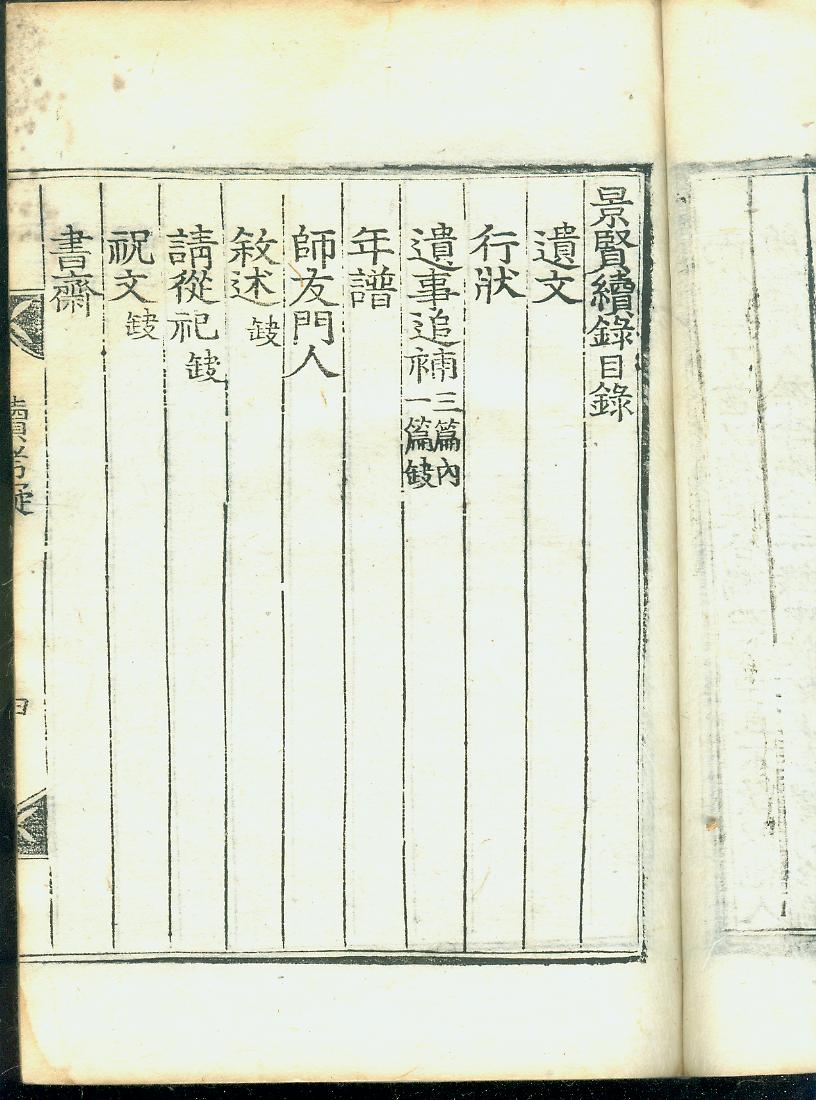 景賢續錄目錄
遺文
行狀
遺事追補三篇內一篇缺
年譜
師友門人
敘述缺
請從祀缺
祝文缺
書齋